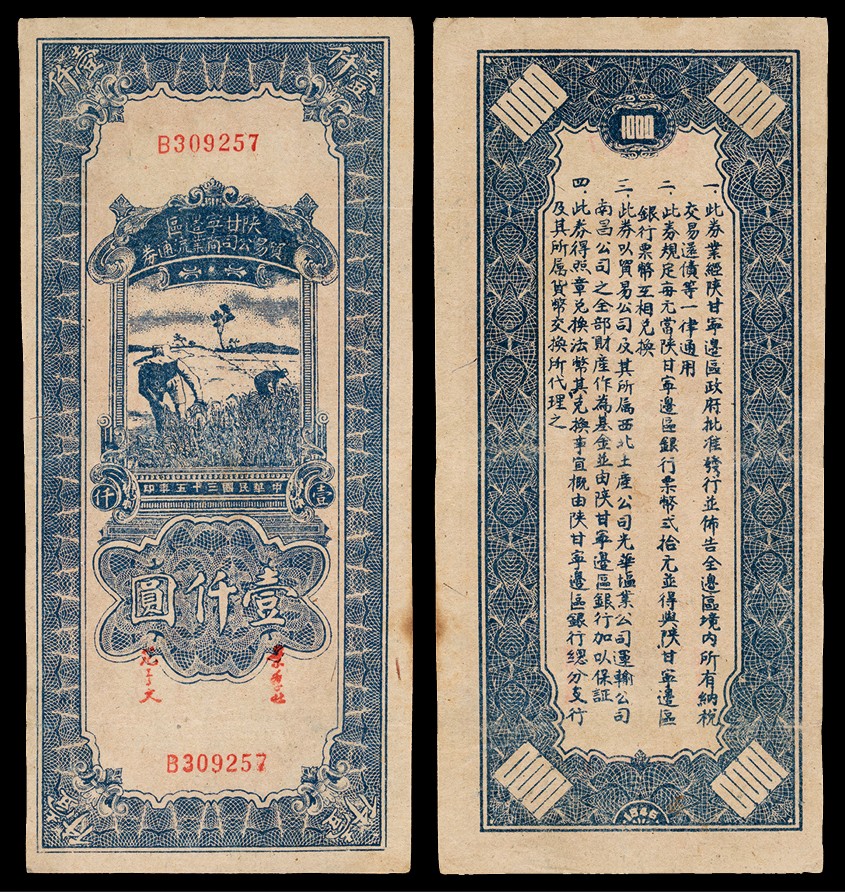 壹仟
壹仟
B309257
陝甘寧邊區
貿易公司商業流通券
中華民國三十五年印
壹
仟
壹仟圓
B309257
壹仟
壹仟
1000
1000
1000
一.此券業經陝甘寧邊區政府批准發行並佈告全邊區境內所有納稅
交易還債等一律通用
二.此券規定每元當陝甘寧邊區銀行票幣弍拾元並得與陝甘寧邊區
銀行票幣互相兌換
三.此券以貿易公司及其所屬西北土產公司光華塩業公司運輸公司
南昌公司之全部財產作為基金並由陝甘寧邊區銀行加以保証
四.此券得照章兌換法幣其兌換事宜概由陝甘寧邊區銀行總分支行
及其所屬貨幣交換所代理之
1000
1000
1946